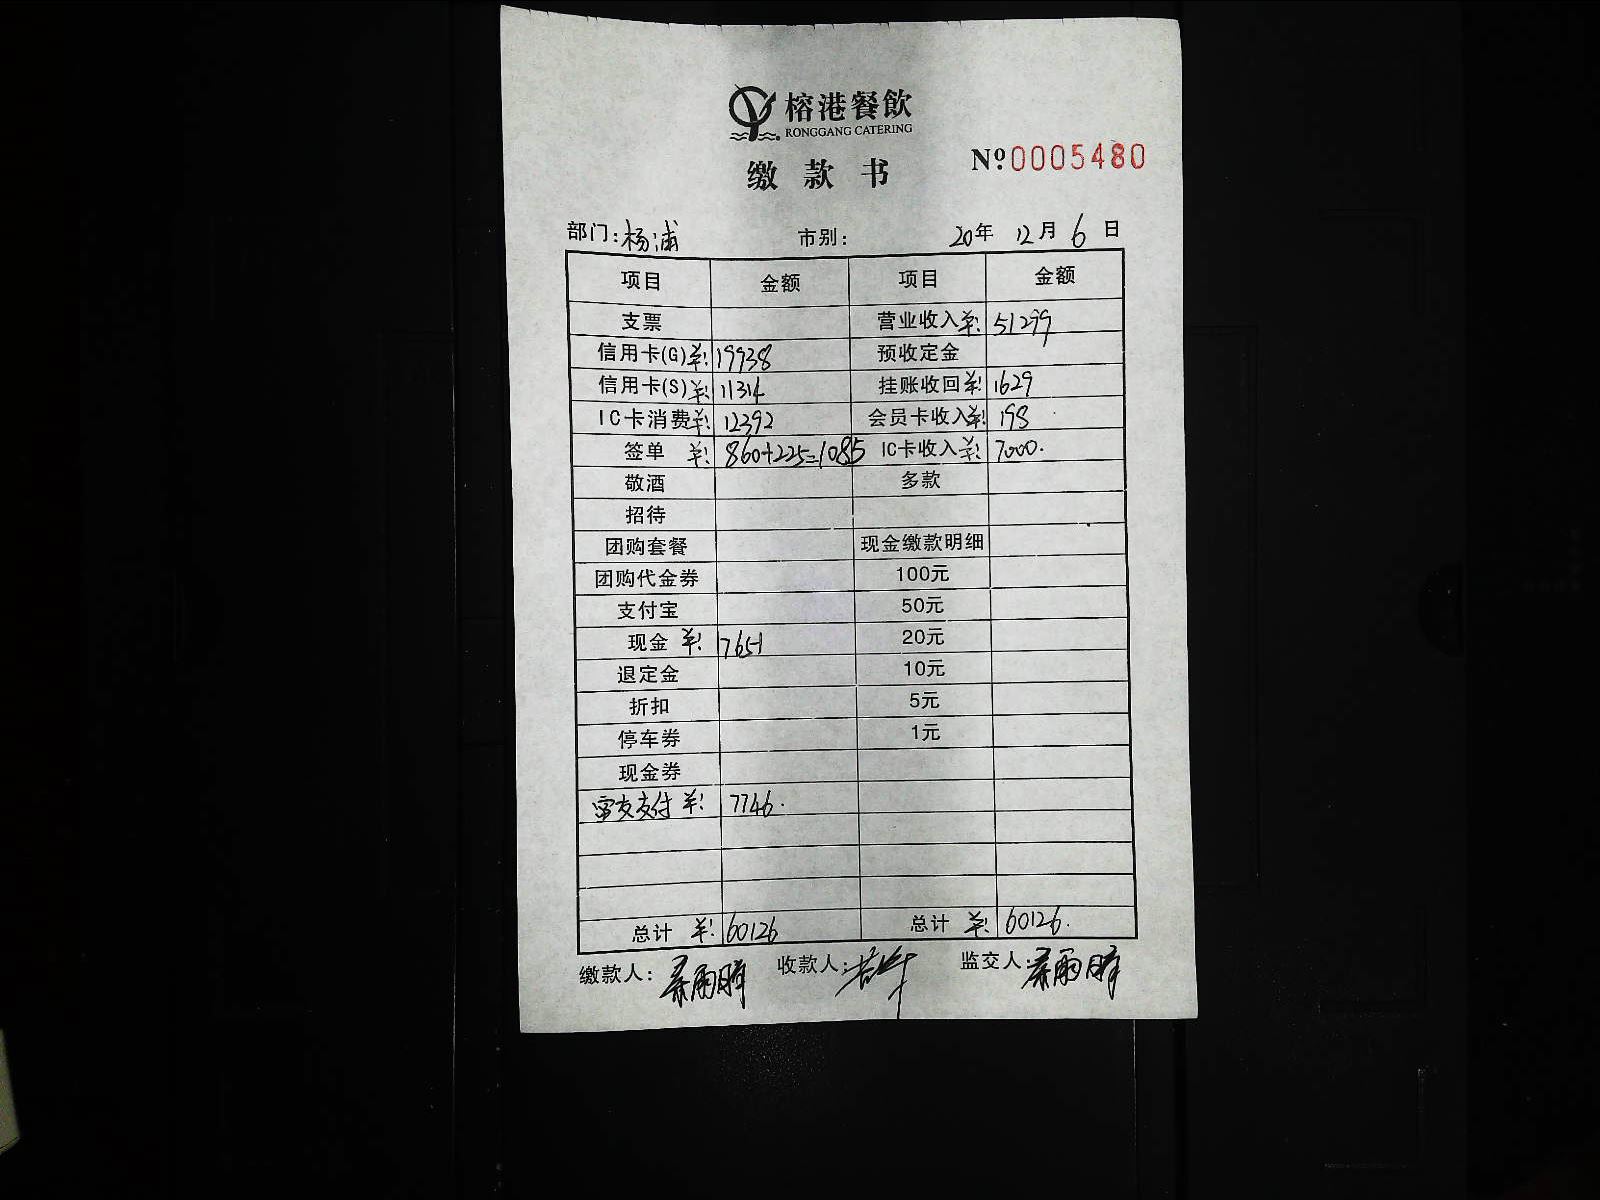 榕港餐飲
RONGGANG CATERING
缴款书
Nº0005480
部门:杨浦 市别: 20年 12月 6日
项目 金额 项目 金额
支票 营业收入¥: 51299
信用卡(G)¥: 19938 预收定金
信用卡(S)¥: 11314 挂账收回¥: 1629
IC卡消费¥: 12392 会员卡收入¥: 198
签单 ¥: 860+225=1085 IC卡收入¥: 7000.
敬酒 多款
招待
团购套餐 现金缴款明细
团购代金券 100元
支付宝 50元
现金 ¥: 7651 20元
退定金 10元
折扣 5元
停车券 1元
现金券
支付 ¥: 7746.
总计 ¥: 60126 总计 ¥: 60126.
缴款人: 收款人: 监交人: